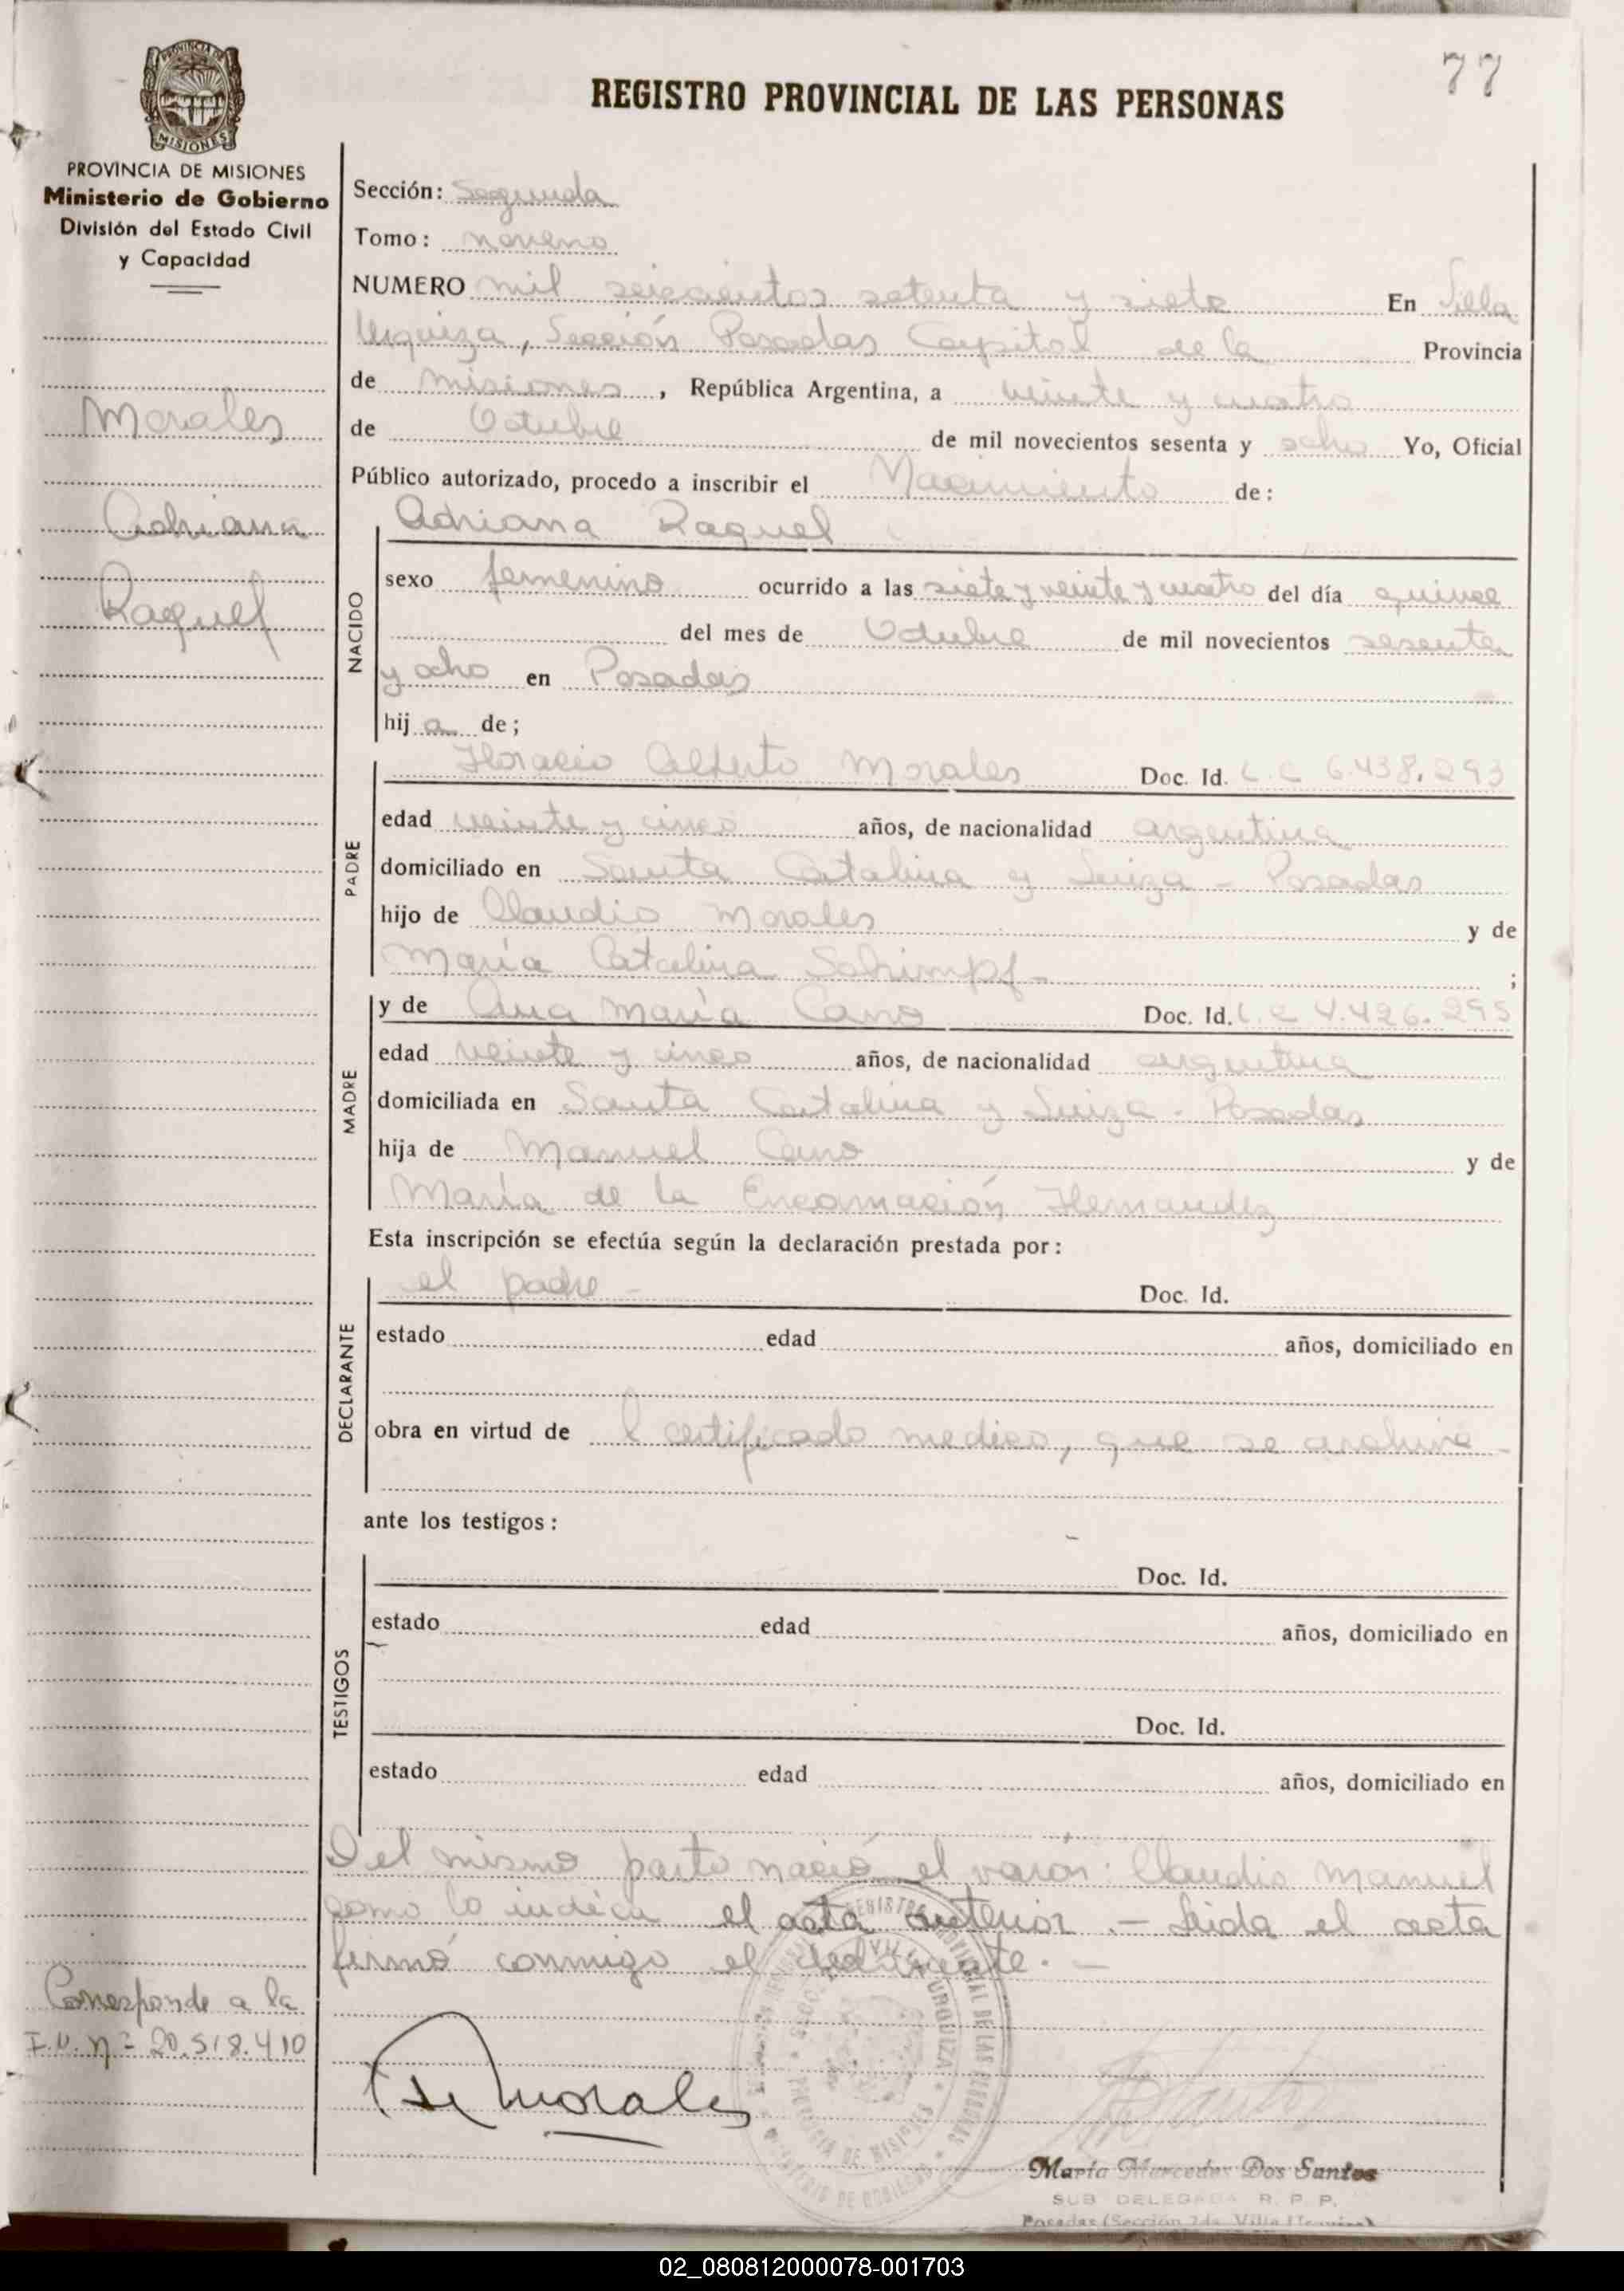 77
REGISTRO PROVINCIAL DE LAS PERSONAS
PROVINCIA DE MISIONES
PROVINCIA DE MISIONES
Ministerio de Gobierno
División del Estado Civil
y Capacidad
Morales
Adriana
Raquel
Sección: Segunda
Tomo: noveno
NUMERO mil seiscientos setenta y siete En Villa
Urquiza, Sección Posadas Capital de la Provincia
de Misiones, República Argentina, a veinte y cuatro
de Octubre de mil novecientos sesenta y ocho Yo, Oficial
Público autorizado, procedo a inscribir el Nacimiento de:
NACIDO
Adriana Raquel
sexo femenino ocurrido a las siete y veinte y cuatro del día quince
del mes de Octubre de mil novecientos sesenta
y ocho en Posadas
hij a de;
PADRE
Horacio Alberto Morales Doc. Id. L.E 6.438.293
edad veinte y cinco años, de nacionalidad argentina
domiciliado en Santa Catalina y Suiza - Posadas
hijo de Claudio Morales y de
María Catalina Schimpf- ;
MADRE
y de Ana María Cano Doc. Id. L.C 4.426.295
edad veinte y cinco años, de nacionalidad argentina
domiciliada en Santa Catalina y Suiza - Posadas
hija de Manuel Cano y de
María de la Encarnación Hernandez
Esta inscripción se efectúa según la declaración prestada por:
DECLARANTE
el padre - Doc. Id.
estado edad años, domiciliado en
obra en virtud de l certificado medico, que se archiva -
ante los testigos:
TESTIGOS
Doc. Id.
estado edad años, domiciliado en
Doc. Id.
estado edad años, domiciliado en
Del mismo parto nació el varón: Claudio Manuel
como lo indica el acta anterior. - Leida el acta
firmó conmigo el declarante. -
Corresponde a la
I.N. nº 20.518.410
Morales
REGISTRO PROVINCIAL DE LAS PERSONAS
VILLA URQUIZA
PROVINCIA DE MISIONES
MINISTERIO DE GOBIERNO
María Mercedes Dos Santos
SUB DELEGADA R. P. P.
Posadas (Sección 2da. Villa Urquiza)
02_080812000078-001703